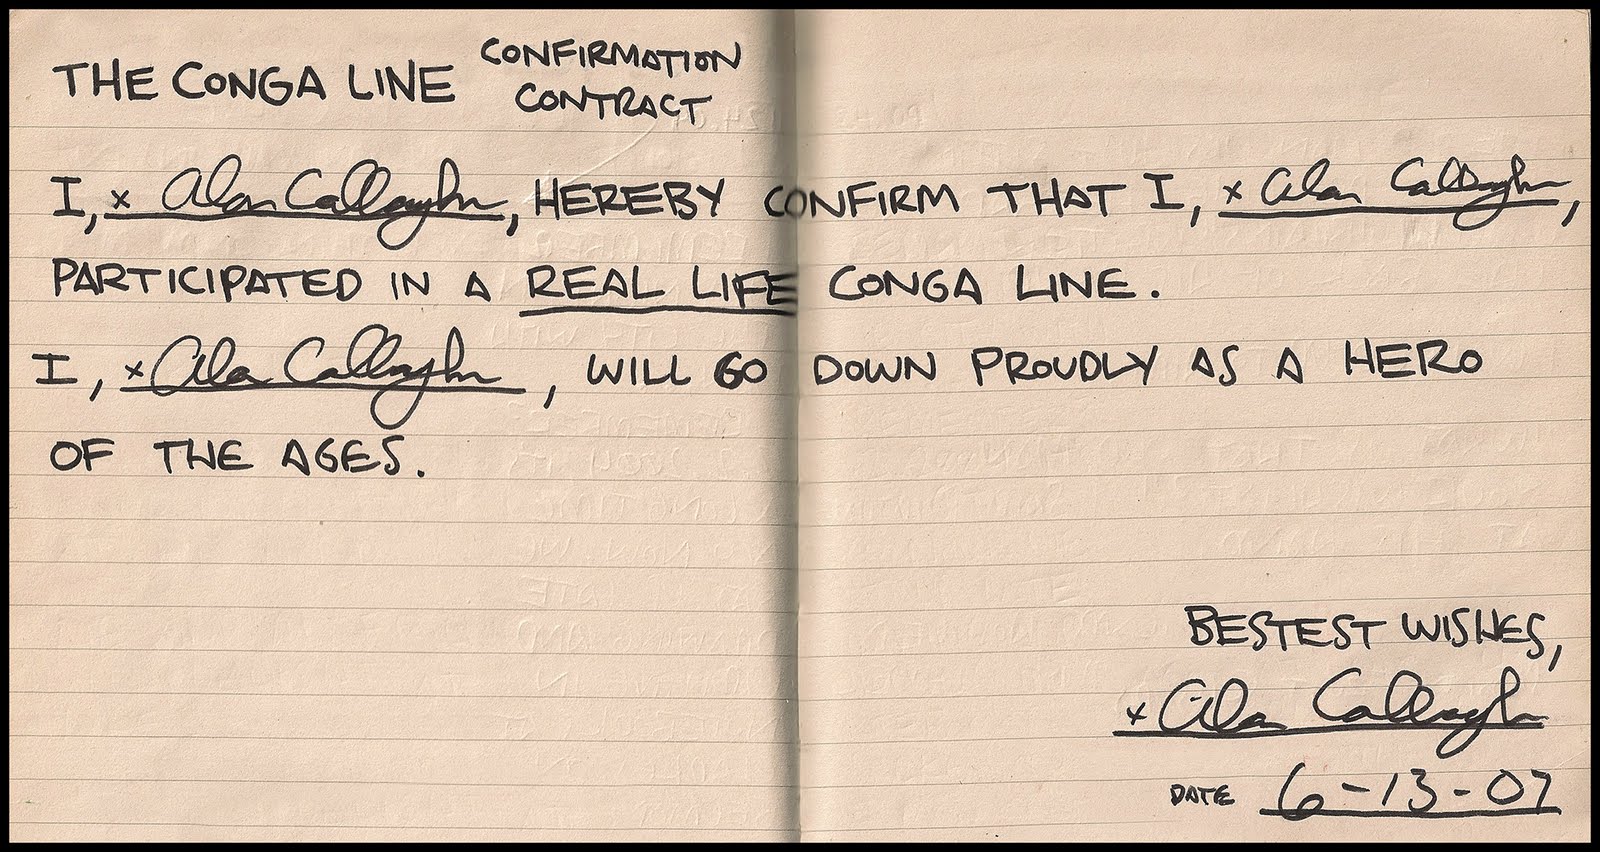 THE CONGA LINE CONFIRMATION CONTRACT
I, x Alan Callaghan, HEREBY CONFIRM THAT I, x Alan Callaghan,
PARTICIPATED IN A REAL LIFE CONGA LINE.
I, x Alan Callaghan, WILL GO DOWN PROUDLY AS A HERO
OF THE AGES.
BESTEST WISHES,
x Alan Callaghan
DATE 6-13-07